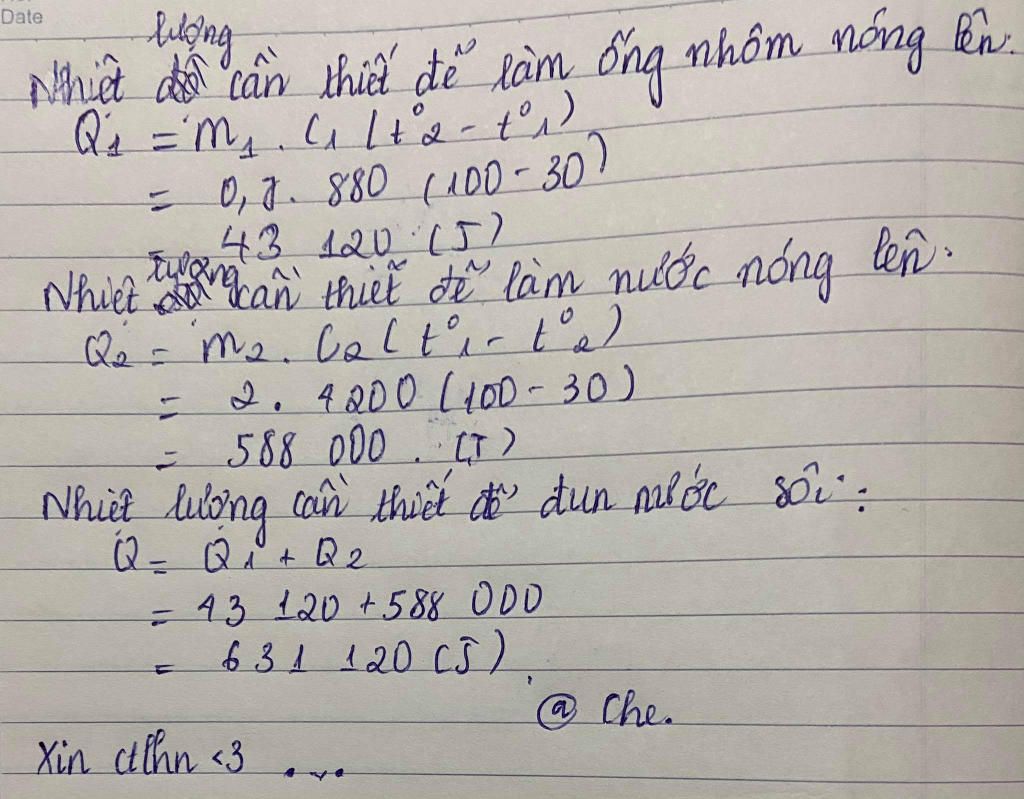 Date
lượng
Nhiệt cần thiết để làm ống nhôm nóng lên.
Q1 = m1. C1 (t°2 - t°1)
= 0,7. 880 (100 - 30)
= 43 120 (J)
lượng
Nhiệt cần thiết để làm nước nóng lên.
Q2 = m2. C2 (t°1 - t°2)
= 2. 4200 (100 - 30)
= 588 000. (J)
Nhiệt lượng cần thiết để đun nước sôi:
Q = Q1 + Q2
= 43 120 + 588 000
= 631 120 (J)
@ Che.
Xin ctlhn <3 ...